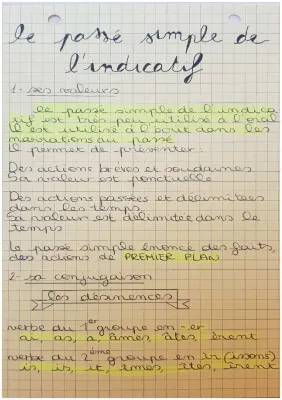 le passé simple de
l'indicatif
1- ses valeurs
le passé simple de l'indica
tif est très peu utilisé à l'oral
Il est utilisé à l'écrit dans les
narrations au passé
Il permet de présenter :
Des actions brèves et soudaines
Sa valeur est ponctuelle
Des actions passées et délimitées
dans les temps
Sa valeur est délimitée dans le
temps
Le passé simple énonce des faits,
des actions de PREMIER PLAN
2- sa conjugaison
les désinences
verbe du 1er groupe en -er
ai, as, a, âmes, âtes, èrent
verbe du 2ème groupe en ir (issons)
is, is, it, îmes, îtes, irent